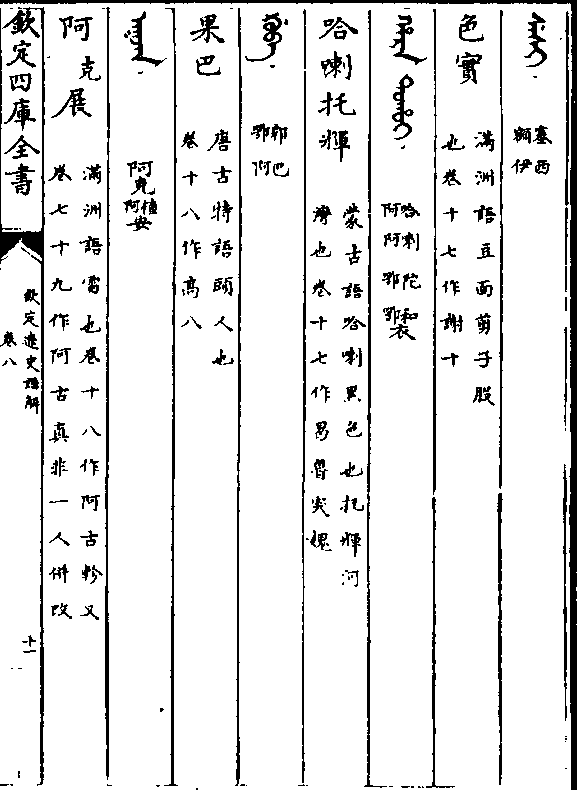 塞西
額伊
色實
滿洲語豆面剪子股
也卷十七作謝十
哈剌陀和衣
阿阿鄂鄂
哈喇托輝
蒙古語哈喇黑色也托輝河
灣也卷十七作曷魯突媿
郭巴
鄂阿
果巴
唐古特語頭人也
卷十八作高八
阿克植安
阿
阿克展
滿洲語雷也卷十八作阿古軫又
卷七十九作阿古真非一人併改
欽定四庫全書
欽定遼史語解
卷八
十一